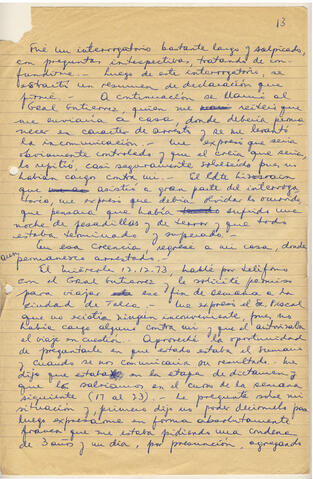 13
Fué un interrogatorio bastante largo y salpicado,
con preguntas intespectivas, tratando de con-
fundirme.- Luego de este interrogatorio, se
extractó un resumen de declaración que
firmé.- A continuación se llamó al
Gral Gutierrez, quien me reiteró que
me enviaría a casa, donde debería perma
necer en caracter de arresto y se me levantó
la incomunicación.- Me expresó que sería
seriamente controlado y que el creía que sería,
lo repitió, casi seguramente sobreseido pues no
habían cargos contra mi.- El Cdte
que asistió a gran parte del interroga
torio, me expresó que debía olvidar lo ocurrido,
que pensara que había sufrido una
noche de pesadillas y de terror, y que todo
estaba terminado y superado.-
En esa creencia, regresé a mi casa, donde
aún permanezco arrestado.-
El miércoles 12.12.73, hablé por teléfono
con el Gral Gutierrez y le solicité permiso
para viajar ese fin de semana a la
ciudad de Talca.- Me expresó el Sr Fiscal
que no existía ningún inconveniente, pues no
había cargo alguno contra mi y que el autorizaba
el viaje en cuestión. Aproveché la oportunidad
de preguntarle en que estado estaba el sumario
y cuando se nos comunicaría su resultado.- Me
dijo que estaba en la etapa de dictamen y
que lo sabríamos en el curso de la semana
siguiente (17 al 23).- Le pregunté sobre mi
situación y, primero dijo no poder decírmelo para
luego expresarme en forma absolutamente
franca que me estaba pidiendo una condena
de 3 años y un día, por presunción, agregando